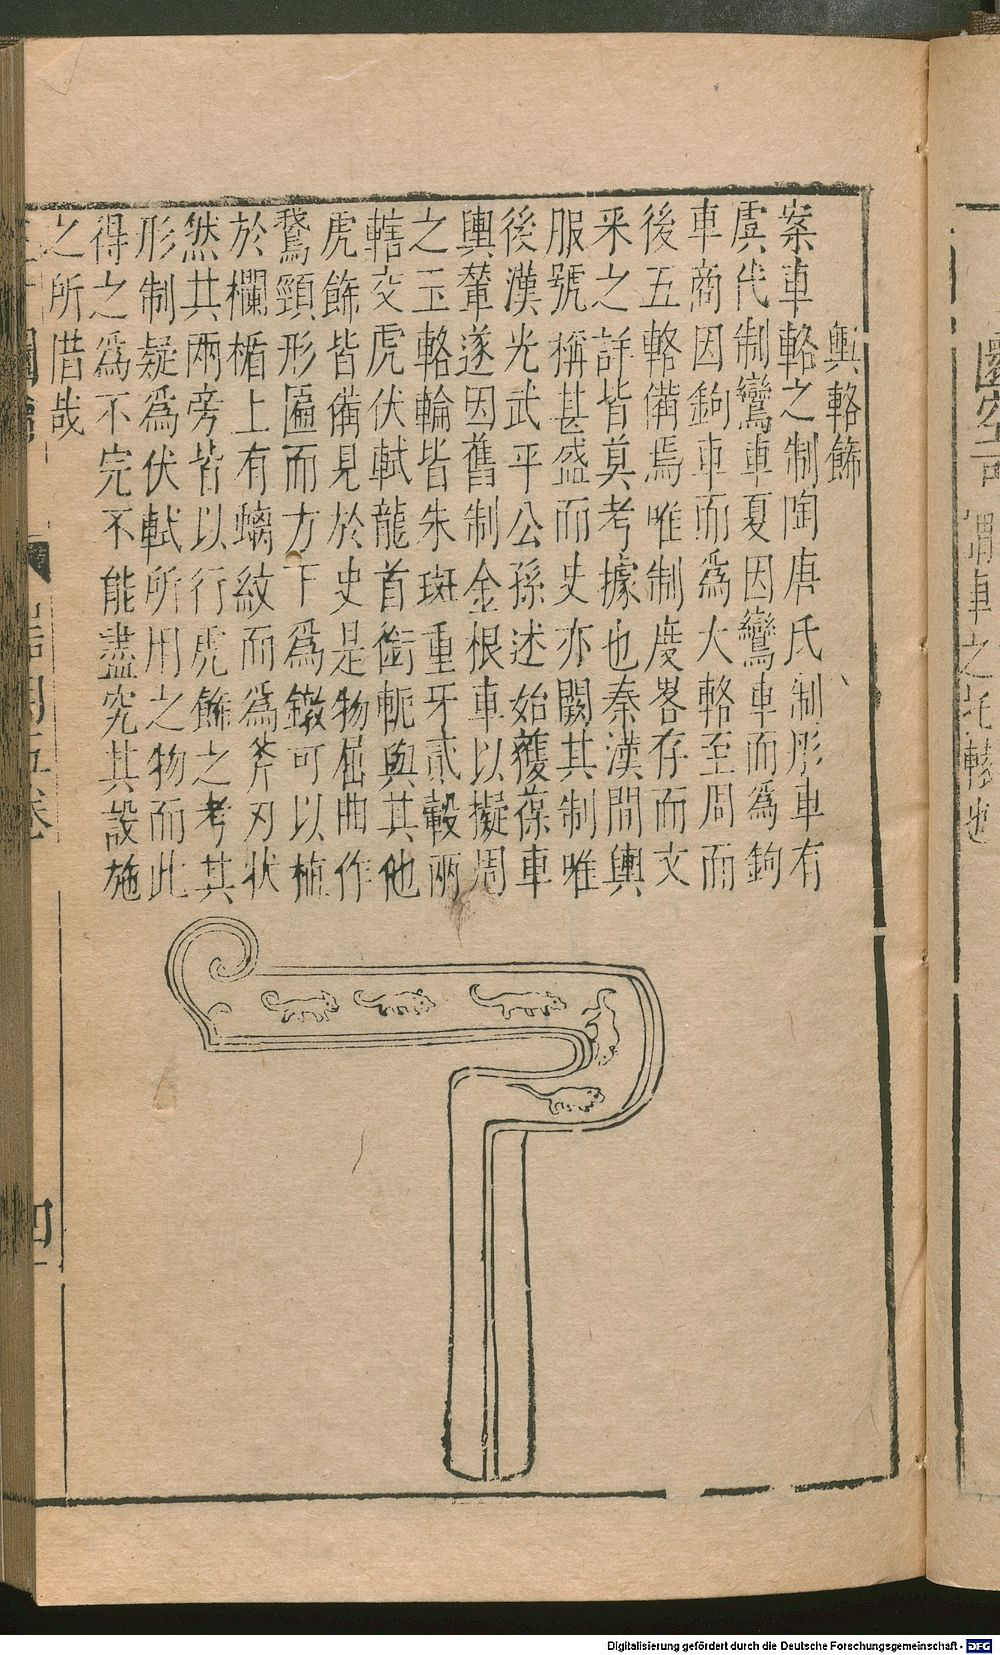 輿輅飾
案車輅之制陶唐氏制彤車有
虞代制鸞車夏因鸞車而為鉤
車商因鉤車而為大輅至周而
後五輅備焉唯制度畧存而文
采之詳皆莫考據也秦漢間輿
服號稱甚盛而史亦闕其制唯
後漢光武平公孫述始獲葆車
輿輦遂因舊制金根車以擬周
之玉輅輪皆朱斑重牙貳轂兩
轄交虎伏軾龍首銜軛與其他
虎飾皆備見於史是物屈曲作
鵞頸形匾而方下為鐓可以植
於欄楯上有螭紋而為斧刃狀
然其兩旁皆以行虎飾之考其
形制疑為伏軾所用之物而此
得之為不完不能盡究其設施
之所惜哉
四
謂車之
Digitalisierung gefördert durch die Deutsche Forschungsgemeinschaft - DFG